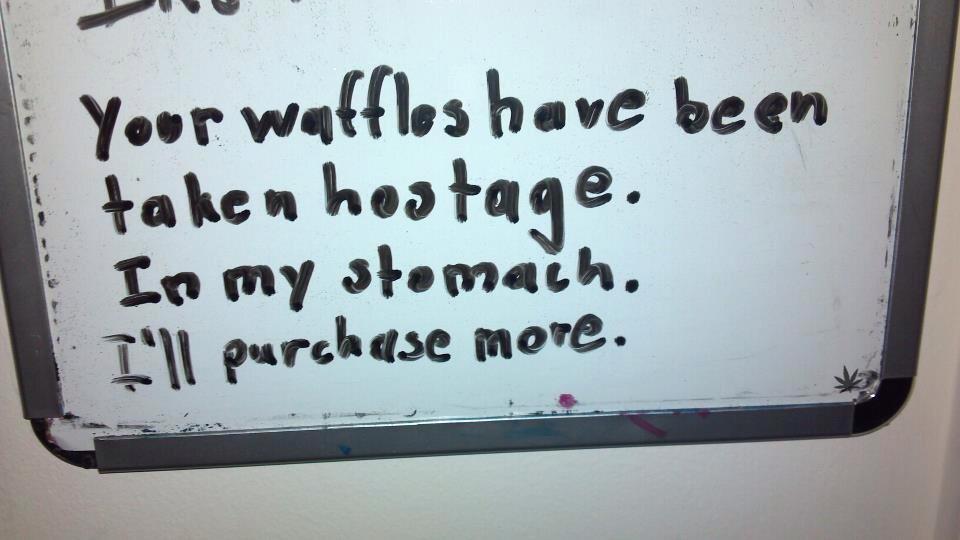 Your waffles have been
taken hostage.
In my stomach.
I'll purchase more.